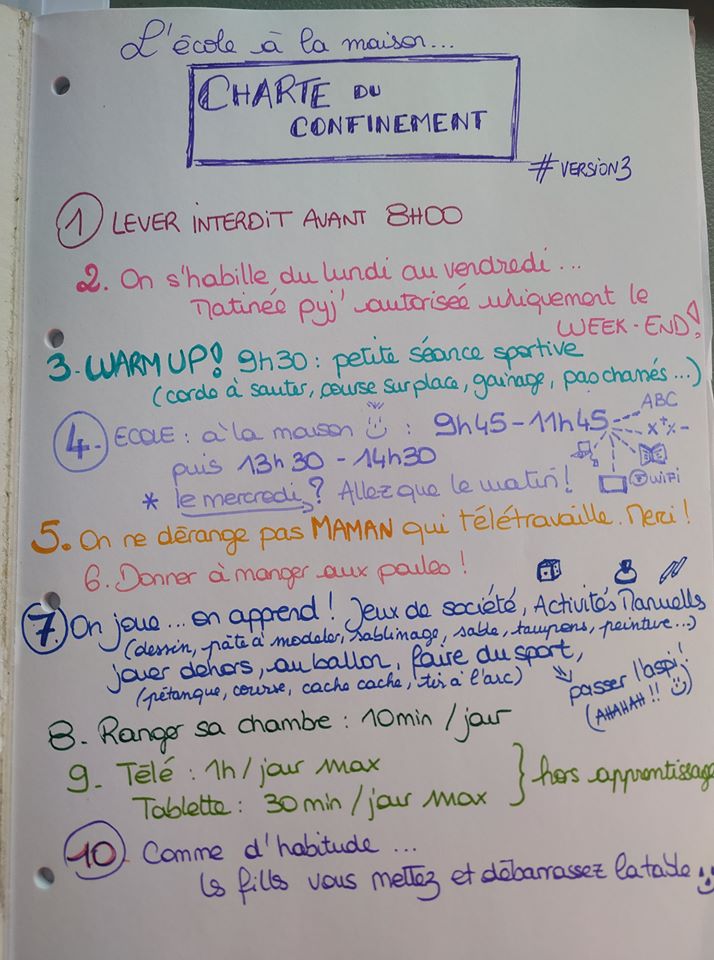 L'école à la maison...
CHARTE DU
CONFINEMENT
# VERSION3
1 LEVER INTERDIT AVANT 8H00
2. On s'habille du lundi au vendredi...
Matinée pyj' autorisée uniquement le
WEEK-END!
3. WARM UP! 9h30 : petite séance sportive
(corde à sauter, course sur place, gainage, pas chassés...)
4. ECOLE : à la maison : 9h45 - 11h45
ABC
x + % -
puis 13h30 - 14h30
WIFI
* le mercredi ? Allez que le matin !
5. On ne dérange pas MAMAN qui télétravaille. Merci !
6. Donner à manger aux poules !
7. On joue... on apprend ! Jeux de société, Activités Manuelles
(dessin, pâte à modeler, sablimage, sable, tampons, peinture...)
jouer dehors, au ballon, faire du sport,
(pétanque, course, cache cache, tir à l'arc)
passer l'aspi !
(AHAHAH !!
8. Ranger sa chambe : 10min / jour
9. Télé : 1h / jour max
Tablette : 30 min / jour max
} hors apprentissage
10 Comme d'habitude ...
ls filles vous mettez et débarrassez la table